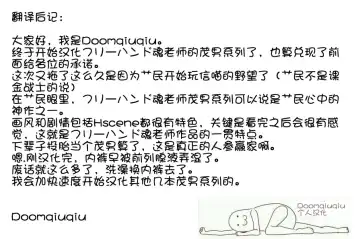 翻译后记：
大家好，我是Doomqiuqiu。
终于开始汉化フリーハンド魂老师的茂最系列了，也算兑现了前
面给各位的承诺。
这次又拖了这么久是因为艹民开始玩信喵的野望了（艹民不是课
金战士的说）
在艹民眼里，フリーハンド魂老师茂最系列可以说是艹民心中的
神作之一。
画风和剧情包括Hscene都很有特色，关键是看完之后会很有感
觉，这就是フリーハンド魂老师作品的一贯特点。
下辈子投胎当个茂最算了，这是真正的人参赢家啊。
嗯，刚汉化完，内裤早被前列腺液弄湿了。
废话就这么多了，洗澡换内裤去了。
我会加快速度开始汉化其他几本茂最系列的。
Doomqiuqiu
Doomqiuqiu
个人汉化